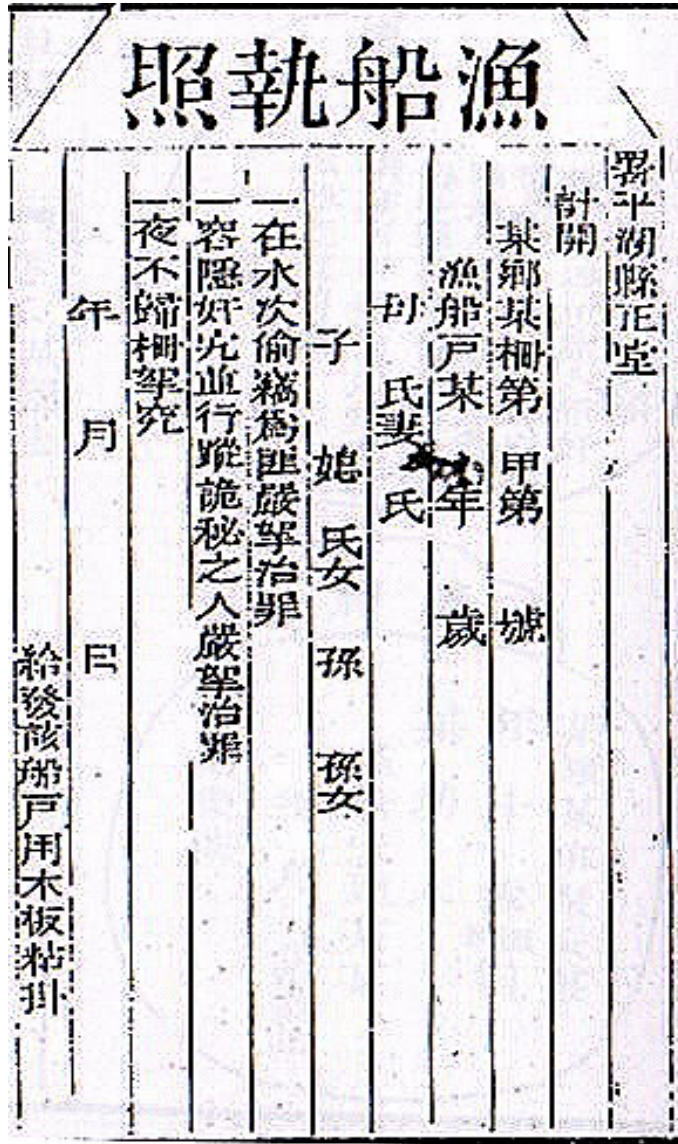 漁船執照
署平湖縣正堂
計開
某鄉某柵第 甲第 號
漁船戶某 年 歲
母 氏妻 氏
子 媳 氏女 孫 孫女
一在水次偷竊爲匪嚴拏治罪
一容隱奸宄並行蹤詭秘之人嚴拏治罪
一夜不歸柵拏究
年 月 日
給發該船戶用木板粘掛